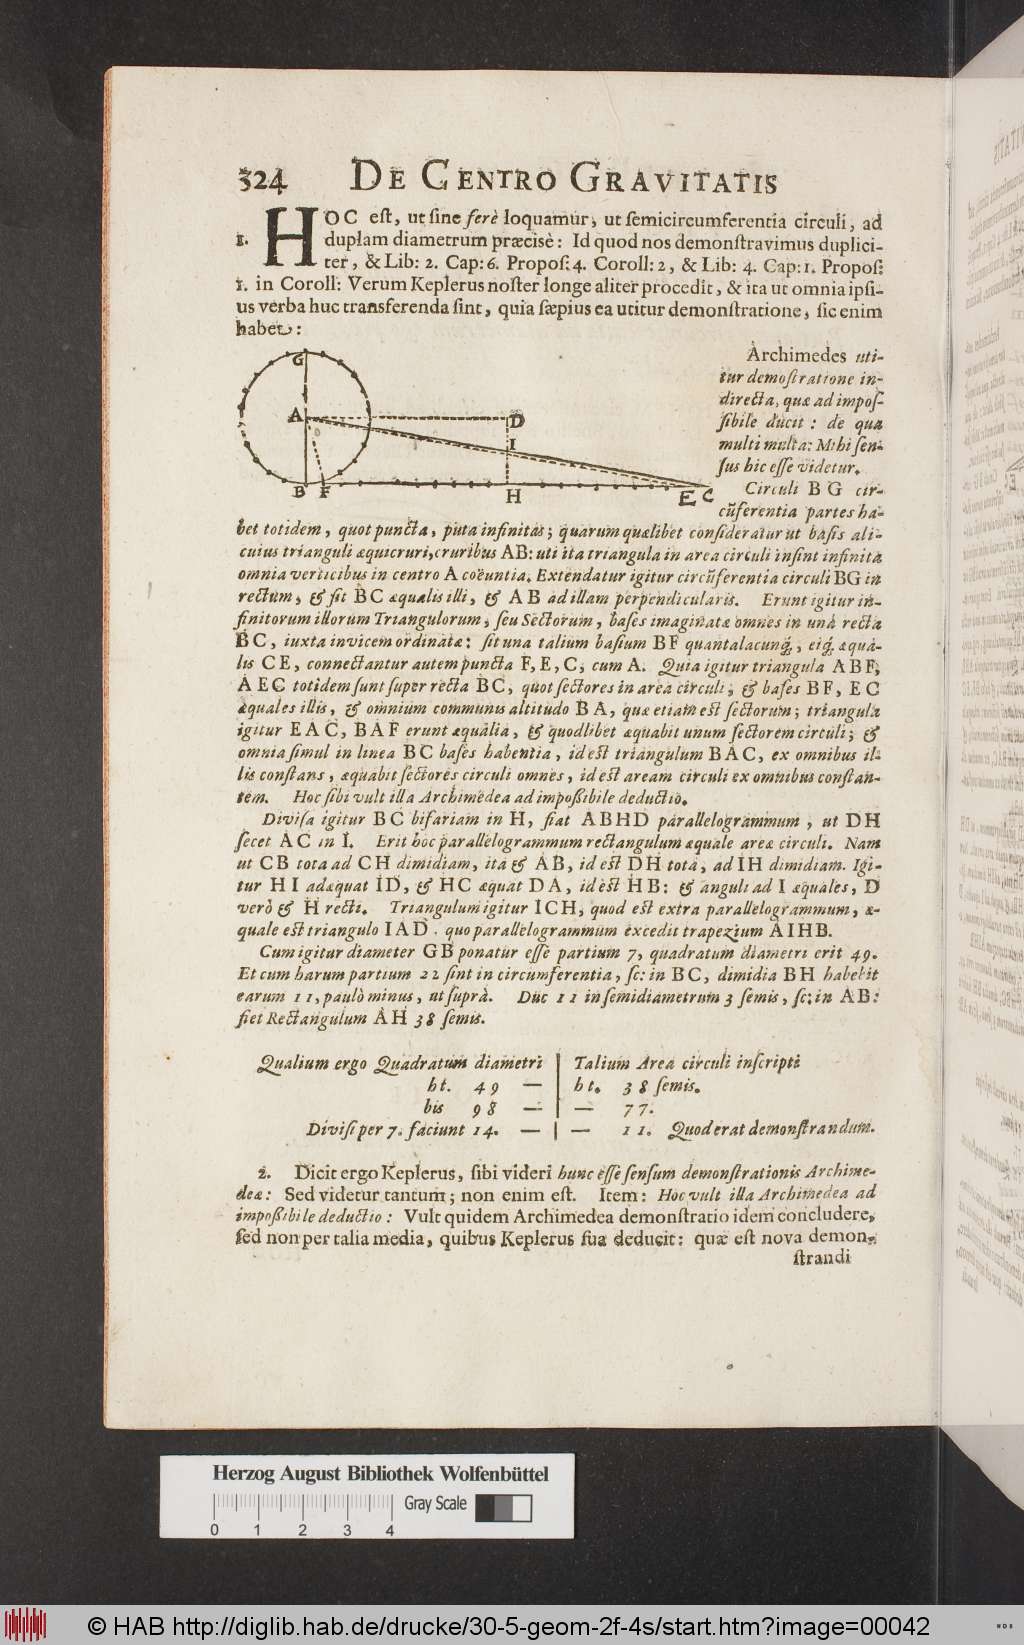 324 DE CENTRO GRAVITATIS
HOC eſt, ut ſine ferè loquamur, ut ſemicircumferentia circuli, ad
1. duplam diametrum præcisè: Id quod nos demonſtravimus duplici-
ter, & Lib: 2. Cap: 6. Propoſ: 4. Coroll: 2, & Lib: 4. Cap: 1. Propoſ:
1. in Coroll: Verum Keplerus noſter longe aliter procedit, & ita ut omnia ipſi-
us verba huc transferenda ſint, quia ſæpius ea utitur demonſtratione, ſic enim
habet:
G
A
D
I
B F
H
E C
Archimedes uti-
tur demoſtratione in-
directa, quæ ad impoſ-
ſibile ducit: de qua
multi multa: Mihi ſen-
ſus hic eſſe videtur.
Circuli BG cir-
cūferentia partes ha-
bet totidem, quot puncta, puta infinitas; quarum quælibet conſideratur ut baſis ali-
cuius trianguli æquicruri, cruribus AB: uti ita triangula in area circuli inſint infinita
omnia verticibus in centro A coëuntia. Extendatur igitur circūferentia circuli BG in
rectum, & ſit BC æqualis illi, & AB ad illam perpendicularis. Erunt igitur in-
finitorum illorum Triangulorum, ſeu Sectorum, baſes imaginatæ omnes in unâ recta
BC, iuxta invicem ordinatæ: ſit una talium baſium BF quantalacunq́;, eiq́; æqua-
lis CE, connectantur autem puncta F, E, C, cum A. Quia igitur triangula ABF,
AEC totidem ſunt ſuper recta BC, quot ſectores in area circuli, & baſes BF, EC
æquales illis, & omnium communis altitudo BA, quæ etiam eſt ſectorum; triangula
igitur EAC, BAF erunt æqualia, & quodlibet æquabit unum ſectorem circuli; &
omnia ſimul in linea BC baſes habentia, id eſt triangulum BAC, ex omnibus il-
lis conſtans, æquabit ſectores circuli omnes, id eſt aream circuli ex omnibus conſtan-
tem. Hoc ſibi vult illa Archimedea ad impoßibile deductio.
Diviſa igitur BC bifariam in H, fiat ABHD parallelogrammum, ut DH
ſecet AC in I. Erit hoc parallelogrammum rectangulum æquale areæ circuli. Nam
ut CB tota ad CH dimidiam, ita & AB, id eſt DH tota, ad IH dimidiam. Igi-
tur HI adæquat ID, & HC æquat DA, id eſt HB: & anguli ad I æquales, D
verò & H recti. Triangulum igitur ICH, quod eſt extra parallelogrammum, æ-
quale eſt triangulo IAD. quo parallelogrammum excedit trapezium AIHB.
Cum igitur diameter GB ponatur eſſe partium 7, quadratum diametri erit 49.
Et cum harum partium 22 ſint in circumferentia, ſc: in BC, dimidia BH habebit
earum 11, paulò minus, ut ſuprà. Duc 11 in ſemidiametrum 3 ſemis, ſc: in AB:
fiet Rectangulum AH 38 ſemis.
Qualium ergo Quadratum diametri | Talium Area circuli inſcripti
ht. 49 — | ht. 38 ſemis.
bis 98 — | — 77.
Diviſi per 7. faciunt 14. — | — 11. Quod erat demonſtrandum.
2. Dicit ergo Keplerus, ſibi videri hunc eſſe ſenſum demonſtrationis Archime-
deæ: Sed videtur tantum; non enim eſt. Item: Hoc vult illa Archimedea ad
impoßibile deductio: Vult quidem Archimedea demonſtratio idem concludere,
ſed non per talia media, quibus Keplerus ſua deducit: quæ eſt nova demon-
ſtrandi
Herzog August Bibliothek Wolfenbüttel
Gray Scale
0 1 2 3 4
© HAB http://diglib.hab.de/drucke/30-5-geom-2f-4s/start.htm?image=00042